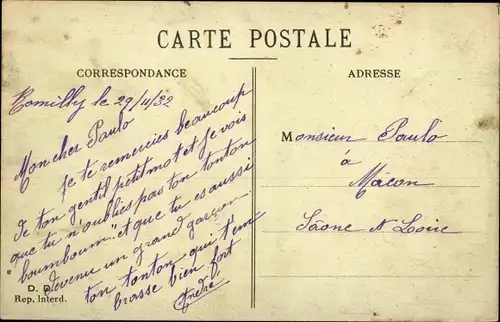 CARTE POSTALE
CORRESPONDANCE
Romilly le 29/11/32
Mon cher Paulo
Je te remercies beaucoup
de ton gentil petit mot et je vois
que tu n'oublies pas ton tonton
"boumboum" et que tu es aussi
devenu un grand garçon
ton tonton qui t'em
brasse bien fort
André
D. D.
Rep. Interd.
ADRESSE
Monsieur Paulo
à
Mâcon
Saone et Loire